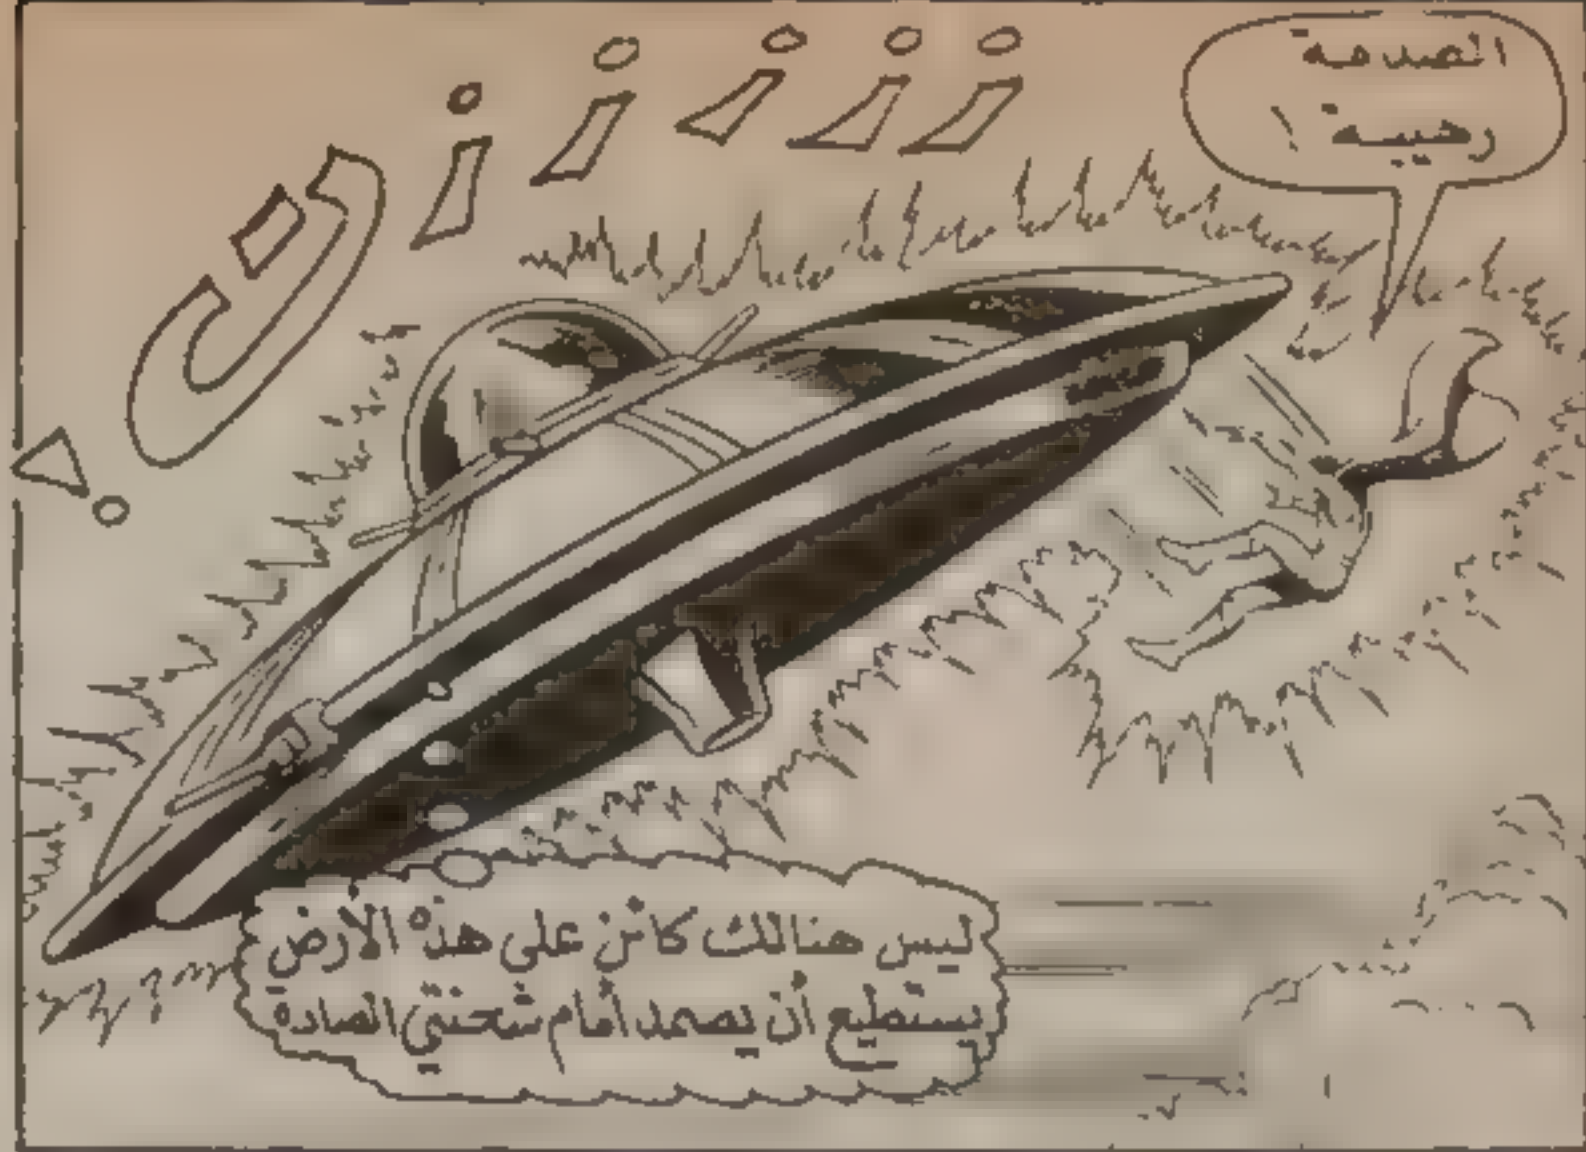 الصدمة
رهيبة !
زززززن !
ليس هنالك كائن على هذه الأرض
يستطيع أن يصمد أمام شحنتي الصادة